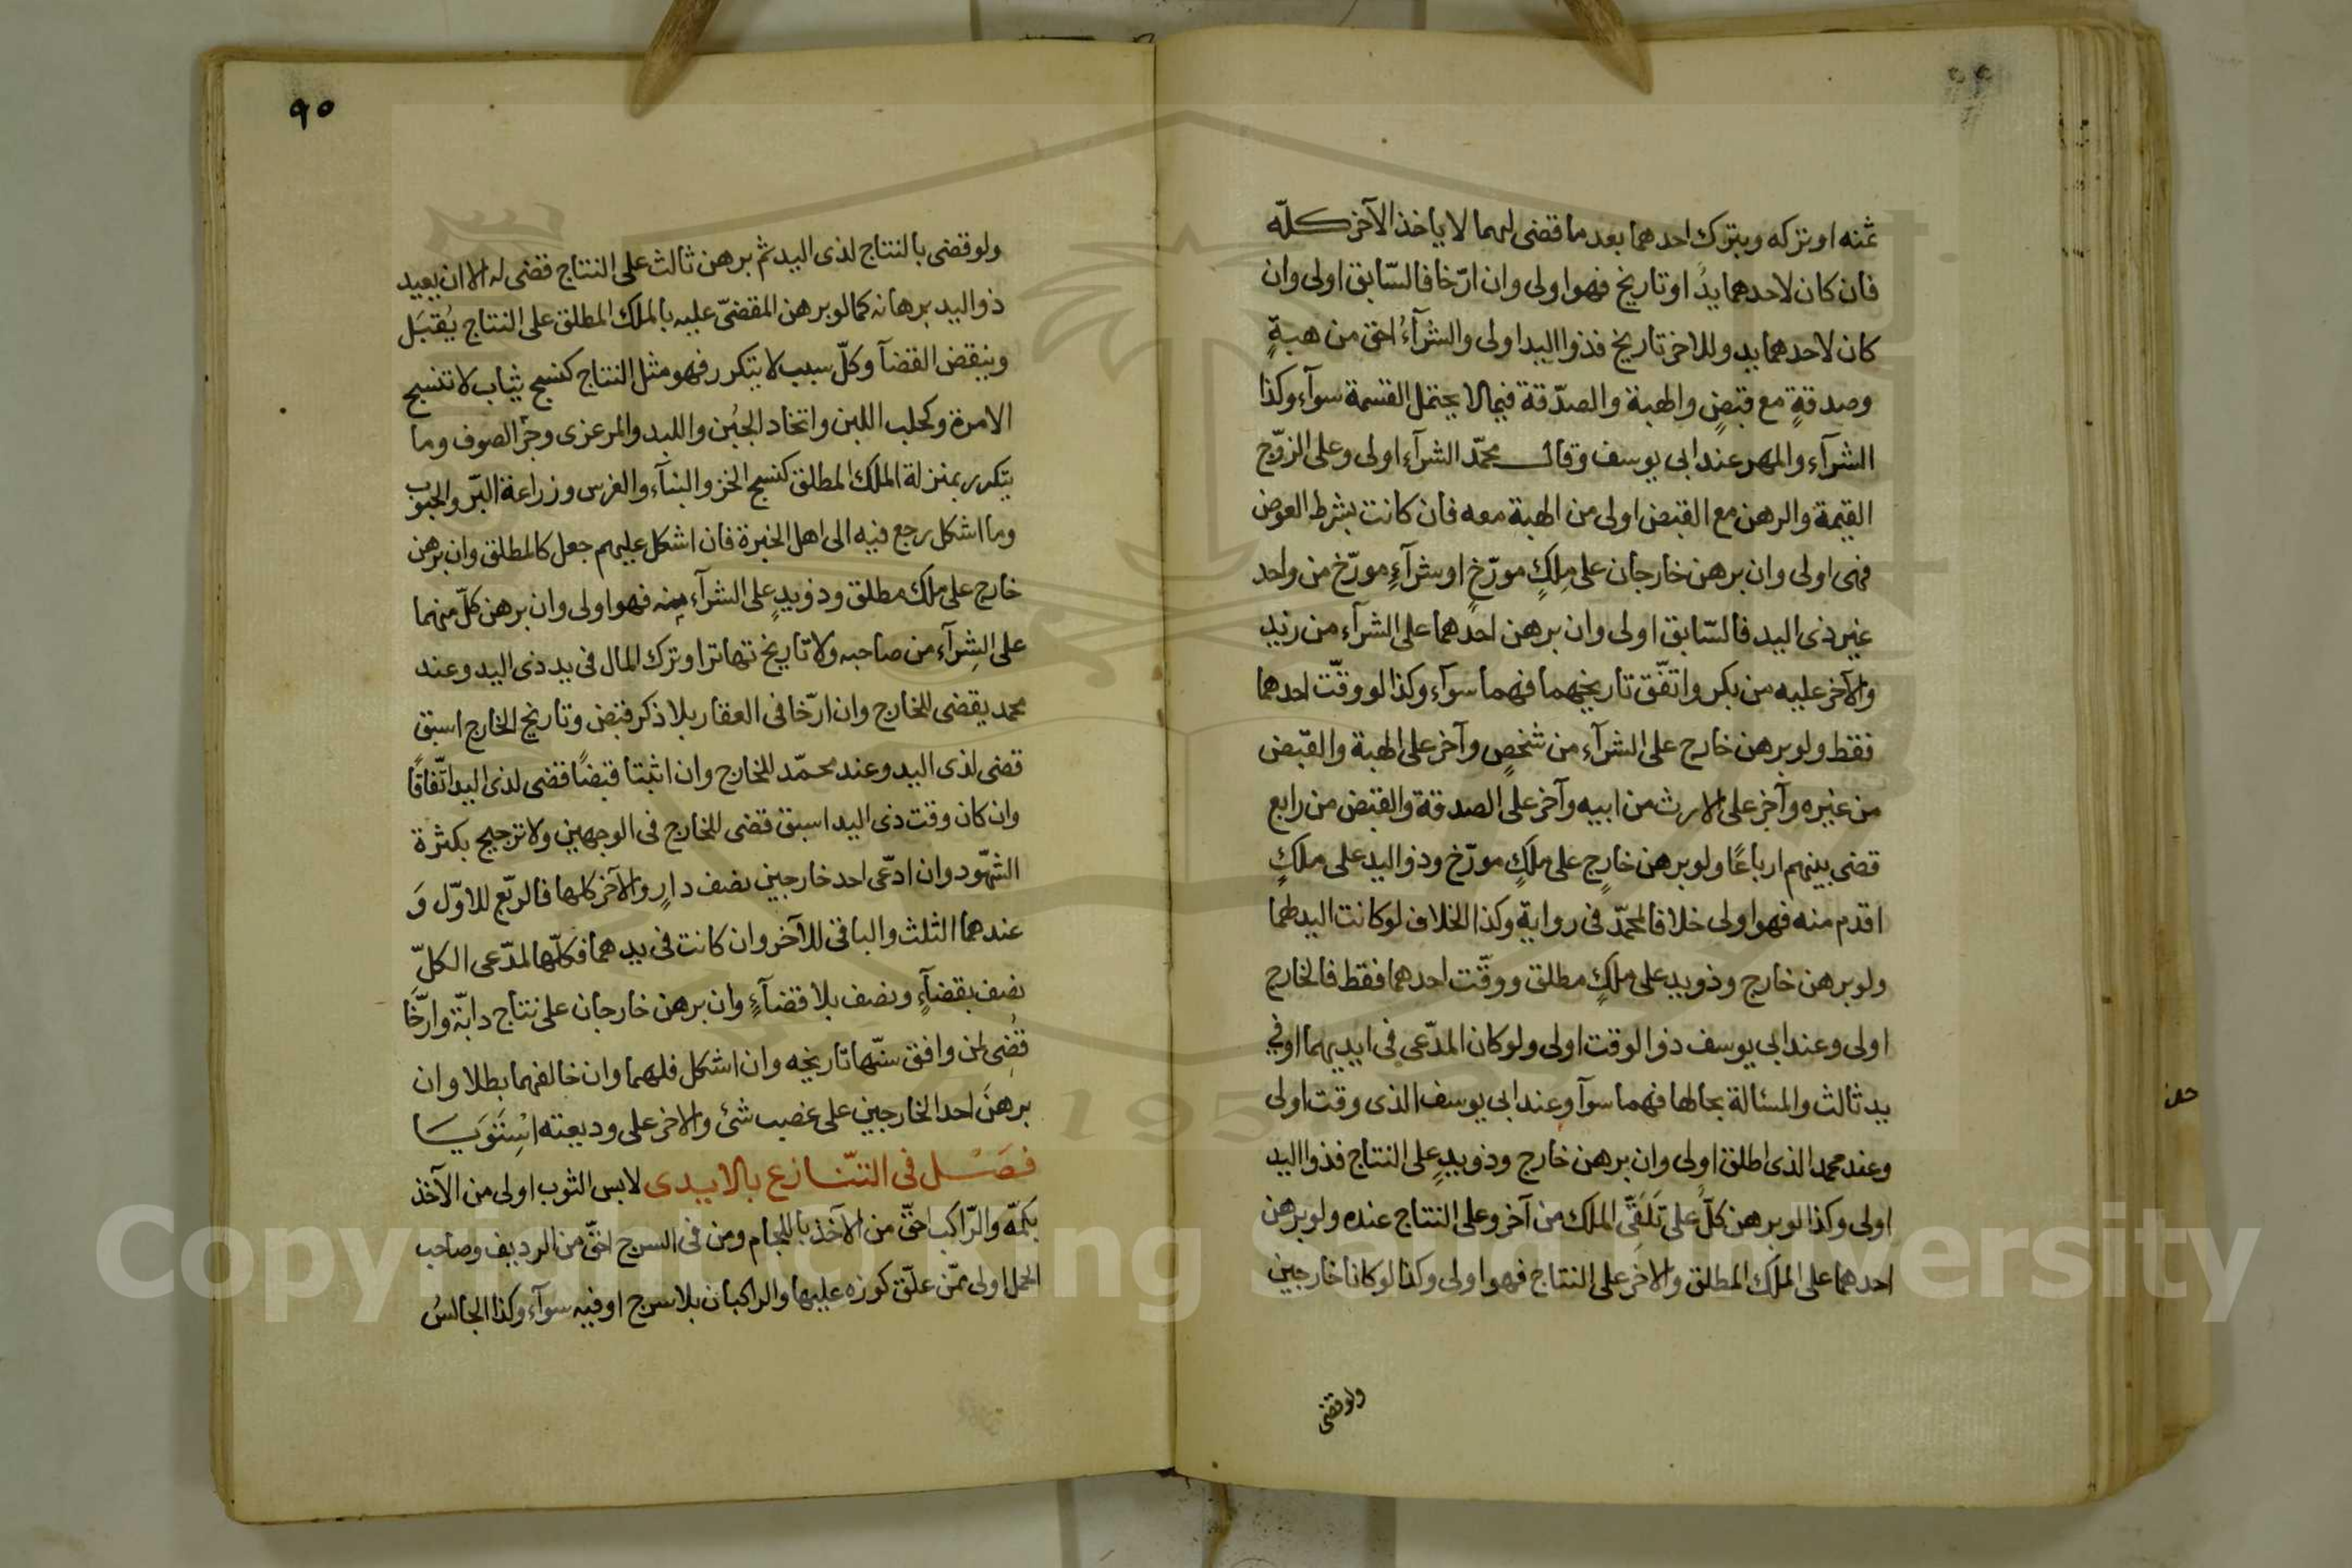 ثمنه او تركه وبترك احدهما بعد ما قضى لهما لا ياخذ الآخر كلّه
فان كان لاحدهما يدٌ او تاريخ فهو اولى وان ارّخا فالسّابق اولى وان
كان لاحدهما يد وللاخر تاريخ فذو اليد اولى والشرآءُ احق من هبةٍ
وصدقةٍ مع قبضٍ والهبة والصدّقة فيما لا يحتمل القسمة سوآء وكذا
الشرآء والمهر عند ابى يوسف وقال محمّد الشرآء اولى وعلى الزوّج
القيمة والرهن مع القبض اولى من الهبة معه فان كانت بشرط العوض
فهى اولى وان برهن خارجان على مِلكٍ مورّخٍ او شرآءٍ مورّخ من واحد
غير ذى اليد فالسّابق اولى وان برهن احدهما على الشرآء من زيد
والآخر عليه من بكر واتفّق تاريخهما فهما سوآء وكذا لو وقّت احدهما
فقط ولو برهن خارج على الشرآء من شخصٍ وآخر على الهبة والقبض
من غيره وآخر على الارث من ابيه وآخر على الصدقة والقبض من رابع
قضى بينهم ارباعًا ولو برهن خارج على ملكٍ مورّخ وذو اليد على ملكٍ
اقدم منه فهو اولى خلافا لمحمّد فى رواية وكذا الخلاف لو كانت اليد لهما
ولو برهن خارج وذو يد على ملكٍ مطلق ووقّت احدهما فقط فالخارج
اولى وعند ابى يوسف ذو الوقت اولى ولو كان المدّعى فى ايديهما او فى
يد ثالث والمسئالة بحالها فهما سوآ وعند ابى يوسف الذى وقت اولى
وعند محمد الذى اطلق اولى وان برهن خارج وذو يدٍ على النتاج فذو اليد
اولى وكذا لو برهن كلٌّ على تَلَقَّى الملك من آخر وعلى النتاج عنده ولو برهن
احدهما على الملك المطلق والاخر على النتاج فهو اولى وكذا لو كانا خارجين
ولو قضى
٩٥
ولو قضى بالنتاج لذى اليد ثم برهن ثالث على النتاج قضى له الا ان يعيد
ذو اليد برهانه كما لو برهن المقضىّ عليه بالملك المطلق على النتاج يُقبَل
وينقض القضآ وكلّ سبب لا يتكرر فهو مثل النتاج كنسج ثياب لا تنسج
الامرة وكحلب اللبن واتخاد الجُبن واللبد والمرعزى وجزّ الصوف وما
يتكرر بمنزلة الملك المطلق كنسج الخز والبنآء والغرس وزراعة البّر والحبوب
وما اشكل رجع فيه الى اهل الخبرة فان اشكل عليهم جعل كالمطلق وان برهن
خارج على ملك مطلق وذو يدٍ على الشرآء منه فهو اولى وان برهن كلّ منهما
على الشِرآء من صاحبه ولا تاريخ تهاترا وترك المال فى يد ذى اليد وعند
محمد يقضى للخارج وان ارّخا فى العقار بلا ذكر قبض وتاريخ الخارج اسبق
قضى لذى اليد وعند محمّد للخارج وان اثبتا قبضًا قضى لذى اليد اتّفاقًا
وان كان وقت ذى اليد اسبق قضى للخارج فى الوجهين ولا ترجيح بكثرة
الشهّود وان ادّعى احد خارجين نصف دارٍ والآخر كلها فالربّع للاوّل وَ
عندهما الثلث والباقى للآخر وان كانت فى يدهما فكلّها لمدّعى الكلّ
نصف بقضآءٍ ونصف بلا قضآءٍ وان برهن خارجان على نتاج دابّة وارّخَا
قُضِى لمن وافق سنّها تاريخه وان اشكل فلهما وان خالفهما بطلا وان
برهنَ احد الخارجين على غصب شئ والاخر على وديعته اسْتَوَيَا
فصَسْل فى التنّازع بالايدى لابس الثوب اولى من الآخذ
بكمّه والرّاكب احقّ من الآخذ باللجام ومن فى السرج احقّ من الرديف وصاحب
الحمل اولى ممّن علّق كوزه عليها والراكبان بلا سرج او فيه سوآء وكذا الجالسُ
Copyright © King Saud University
1957